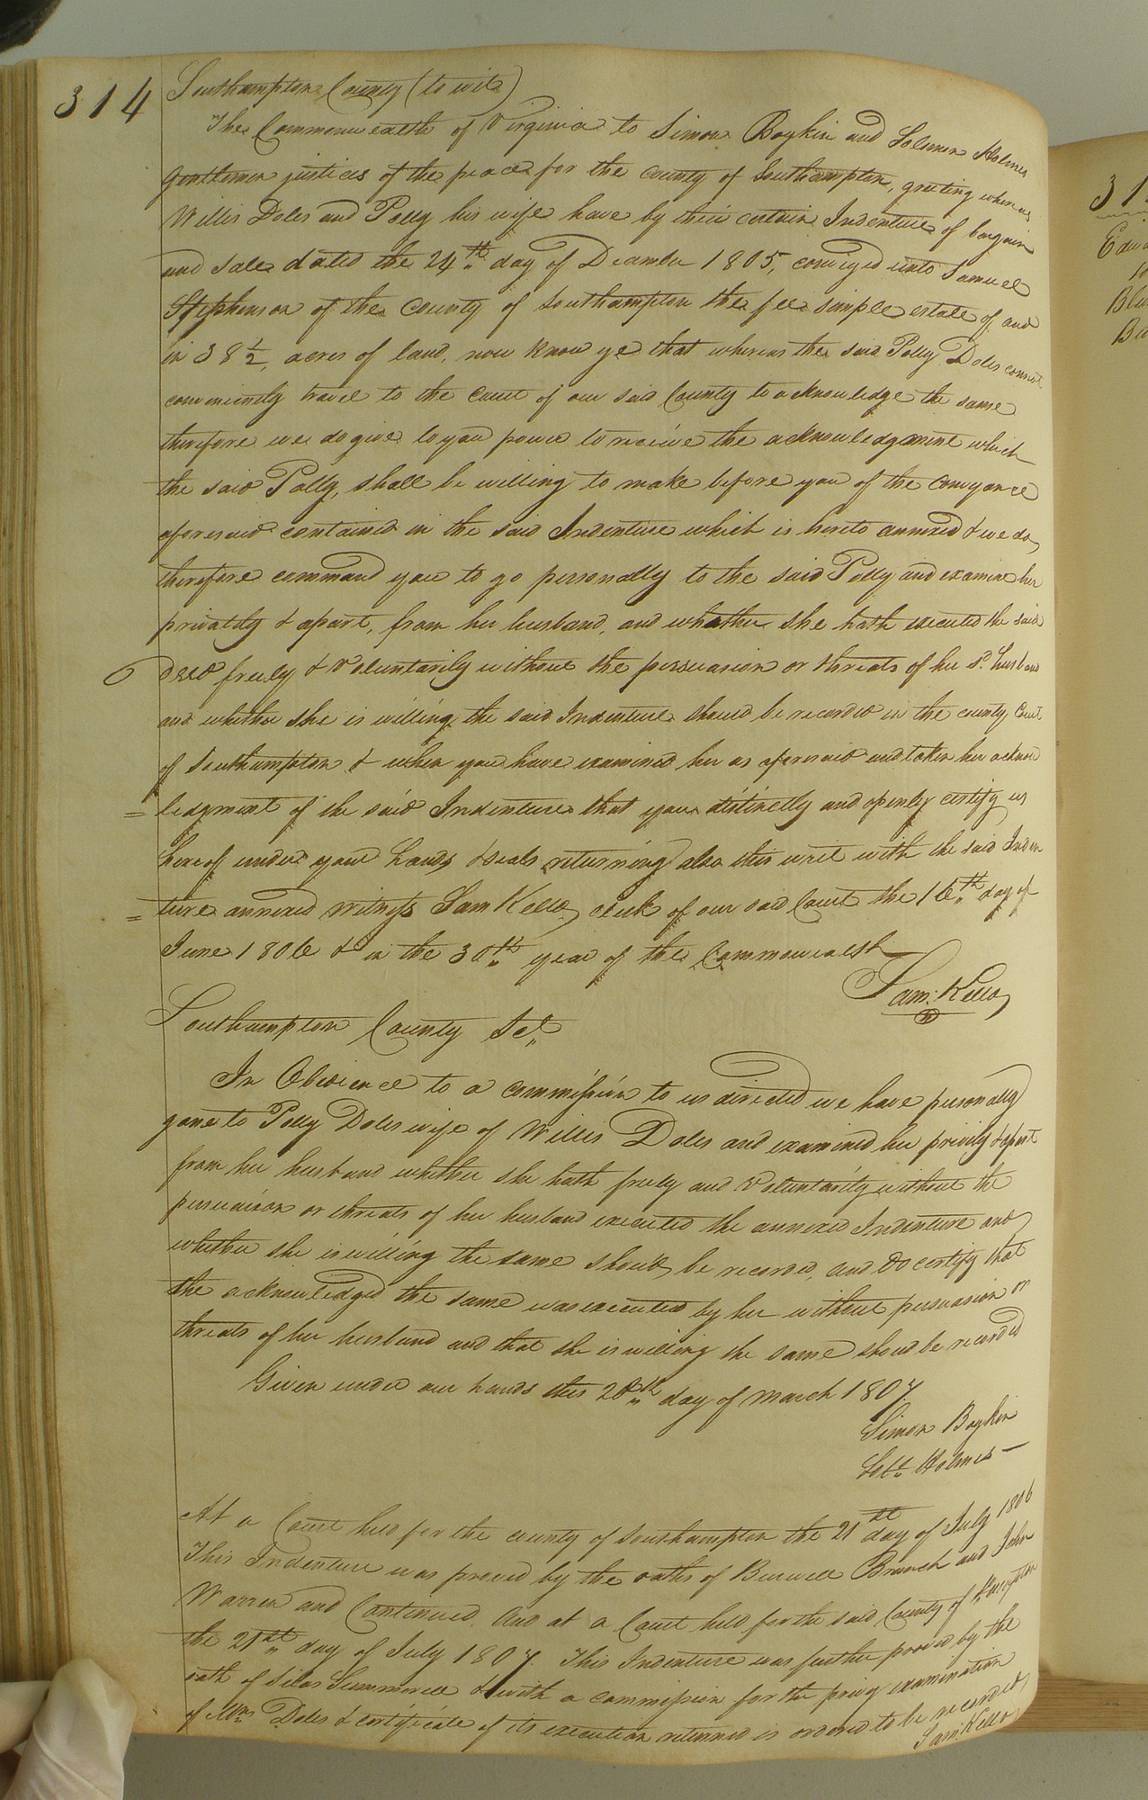 314
Southampton County (to wit)
The Commonwealth of Virginia to Simon Boykin and Solomon Holmes
gentlemen justices of the peace for the county of Southampton, greeting whereas
Willis Doles and Polly his wife have by their certain Indenture of bargain
and sale dated the 24th day of December 1805, conveyed unto Samuel
Stephenson of the County of Southampton the fee simple estate of and
in 38 1/2, acres of land, now know ye that whereas the said Polly Doles cannot
conveniently travel to the Court of our said County to acknowledge the same
therefore we do give to you power to receive the acknowledgment which
the said Polly, shall be willing to make before you of the conveyance
aforesaid contained in the said Indenture which is hereto annexed & we do
therefore command you to go personally to the said Polly and examine her
privately & apart, from her husband, and whether she hath executed the said
deed freely & voluntarily without the persuasion or threats of her sd. husband
and whether she is willing the said Indenture should be recorded in the county Court
of Southampton & when you have examined her as aforesaid and taken her acknow
= ledgment of the said Indenture that you distinctly and openly certify us
hereof under your hands & seals returning also this writ with the said Inden
= ture annexed witness Sam Kello, clerk of our said Court the 16th day of
June 1806 & in the 30th year of the Commonwealth
Sam: Kello
Southampton County Sct,
In Obedience to a commission to us directed we have personally
gone to Polly Doles wife of Willis Doles and examined her privily & apart
from her husband whether she hath freely and voluntarily without the
persuaison or threats of her husband executed the annexed Indenture and
whether she is willing the same should be recorded, and do certify that
she acknowledged the same was executed by her without persuasion or
threats of her husband and that she is willing the same should be recorded
Given under our hands this 20th day of March 1807
Simon Boykin
Holmes
At a Court held for the county of Southampton the 21st day of July 1806
This Indenture was proved by the oaths of Burwell Branch and John
Warren and Continued. And at a Court held for the said County of
the 21st day of July 1807. This Indenture was further proved by the
oath of Silas Summerell & with a commission for the privy examination
of Doles & certificate of its execution returned is ordered to be recorded
Sam: Kello
31